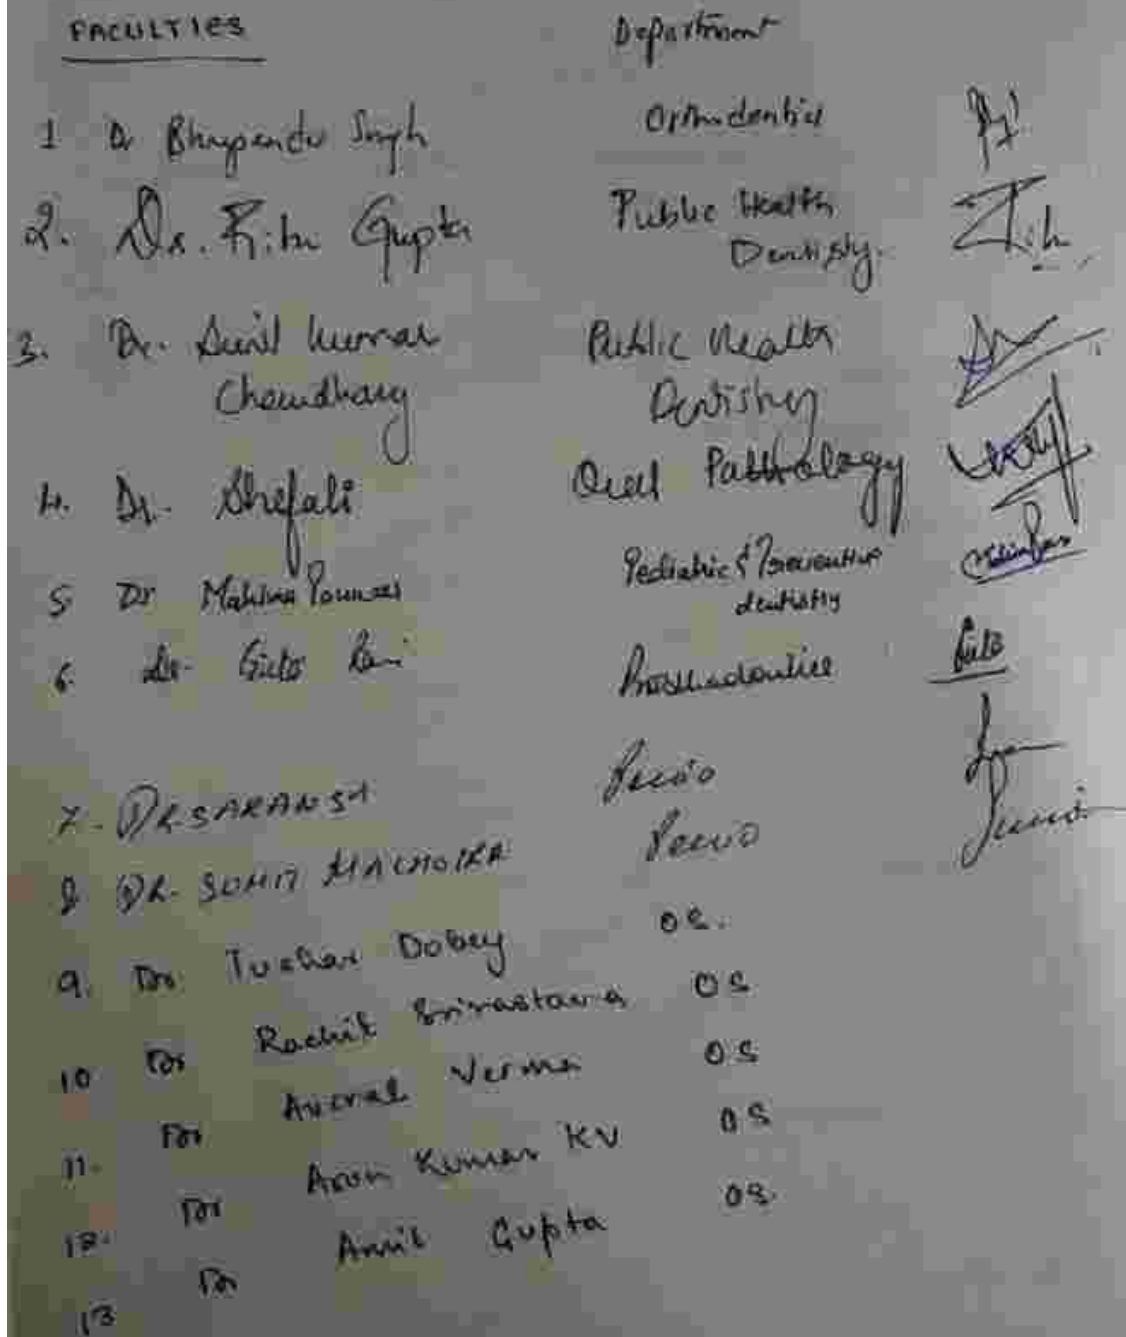 FACULTIES Department
1 Dr Bhupender Singh Orthodontics
2. Dr. Ritu Gupta Public Health
Dentistry.
3. Dr. Sunil Kumar Public Health
Chowdhary Dentistry
4. Dr. Shefali Oral Pathology
5. Dr Mahima Pediatric & Preventive
dentistry
6. Dr. Rani Prosthodontics
7. DR SARANSH Perio
8 DR. SUMIT MALHOTRA Perio
9. Dr Tushar Dobey OS.
10 Dr Rachit Srivastava OS
11. Dr Verma OS
12. Dr Arun Kumar KV OS
13 Dr Gupta OS.